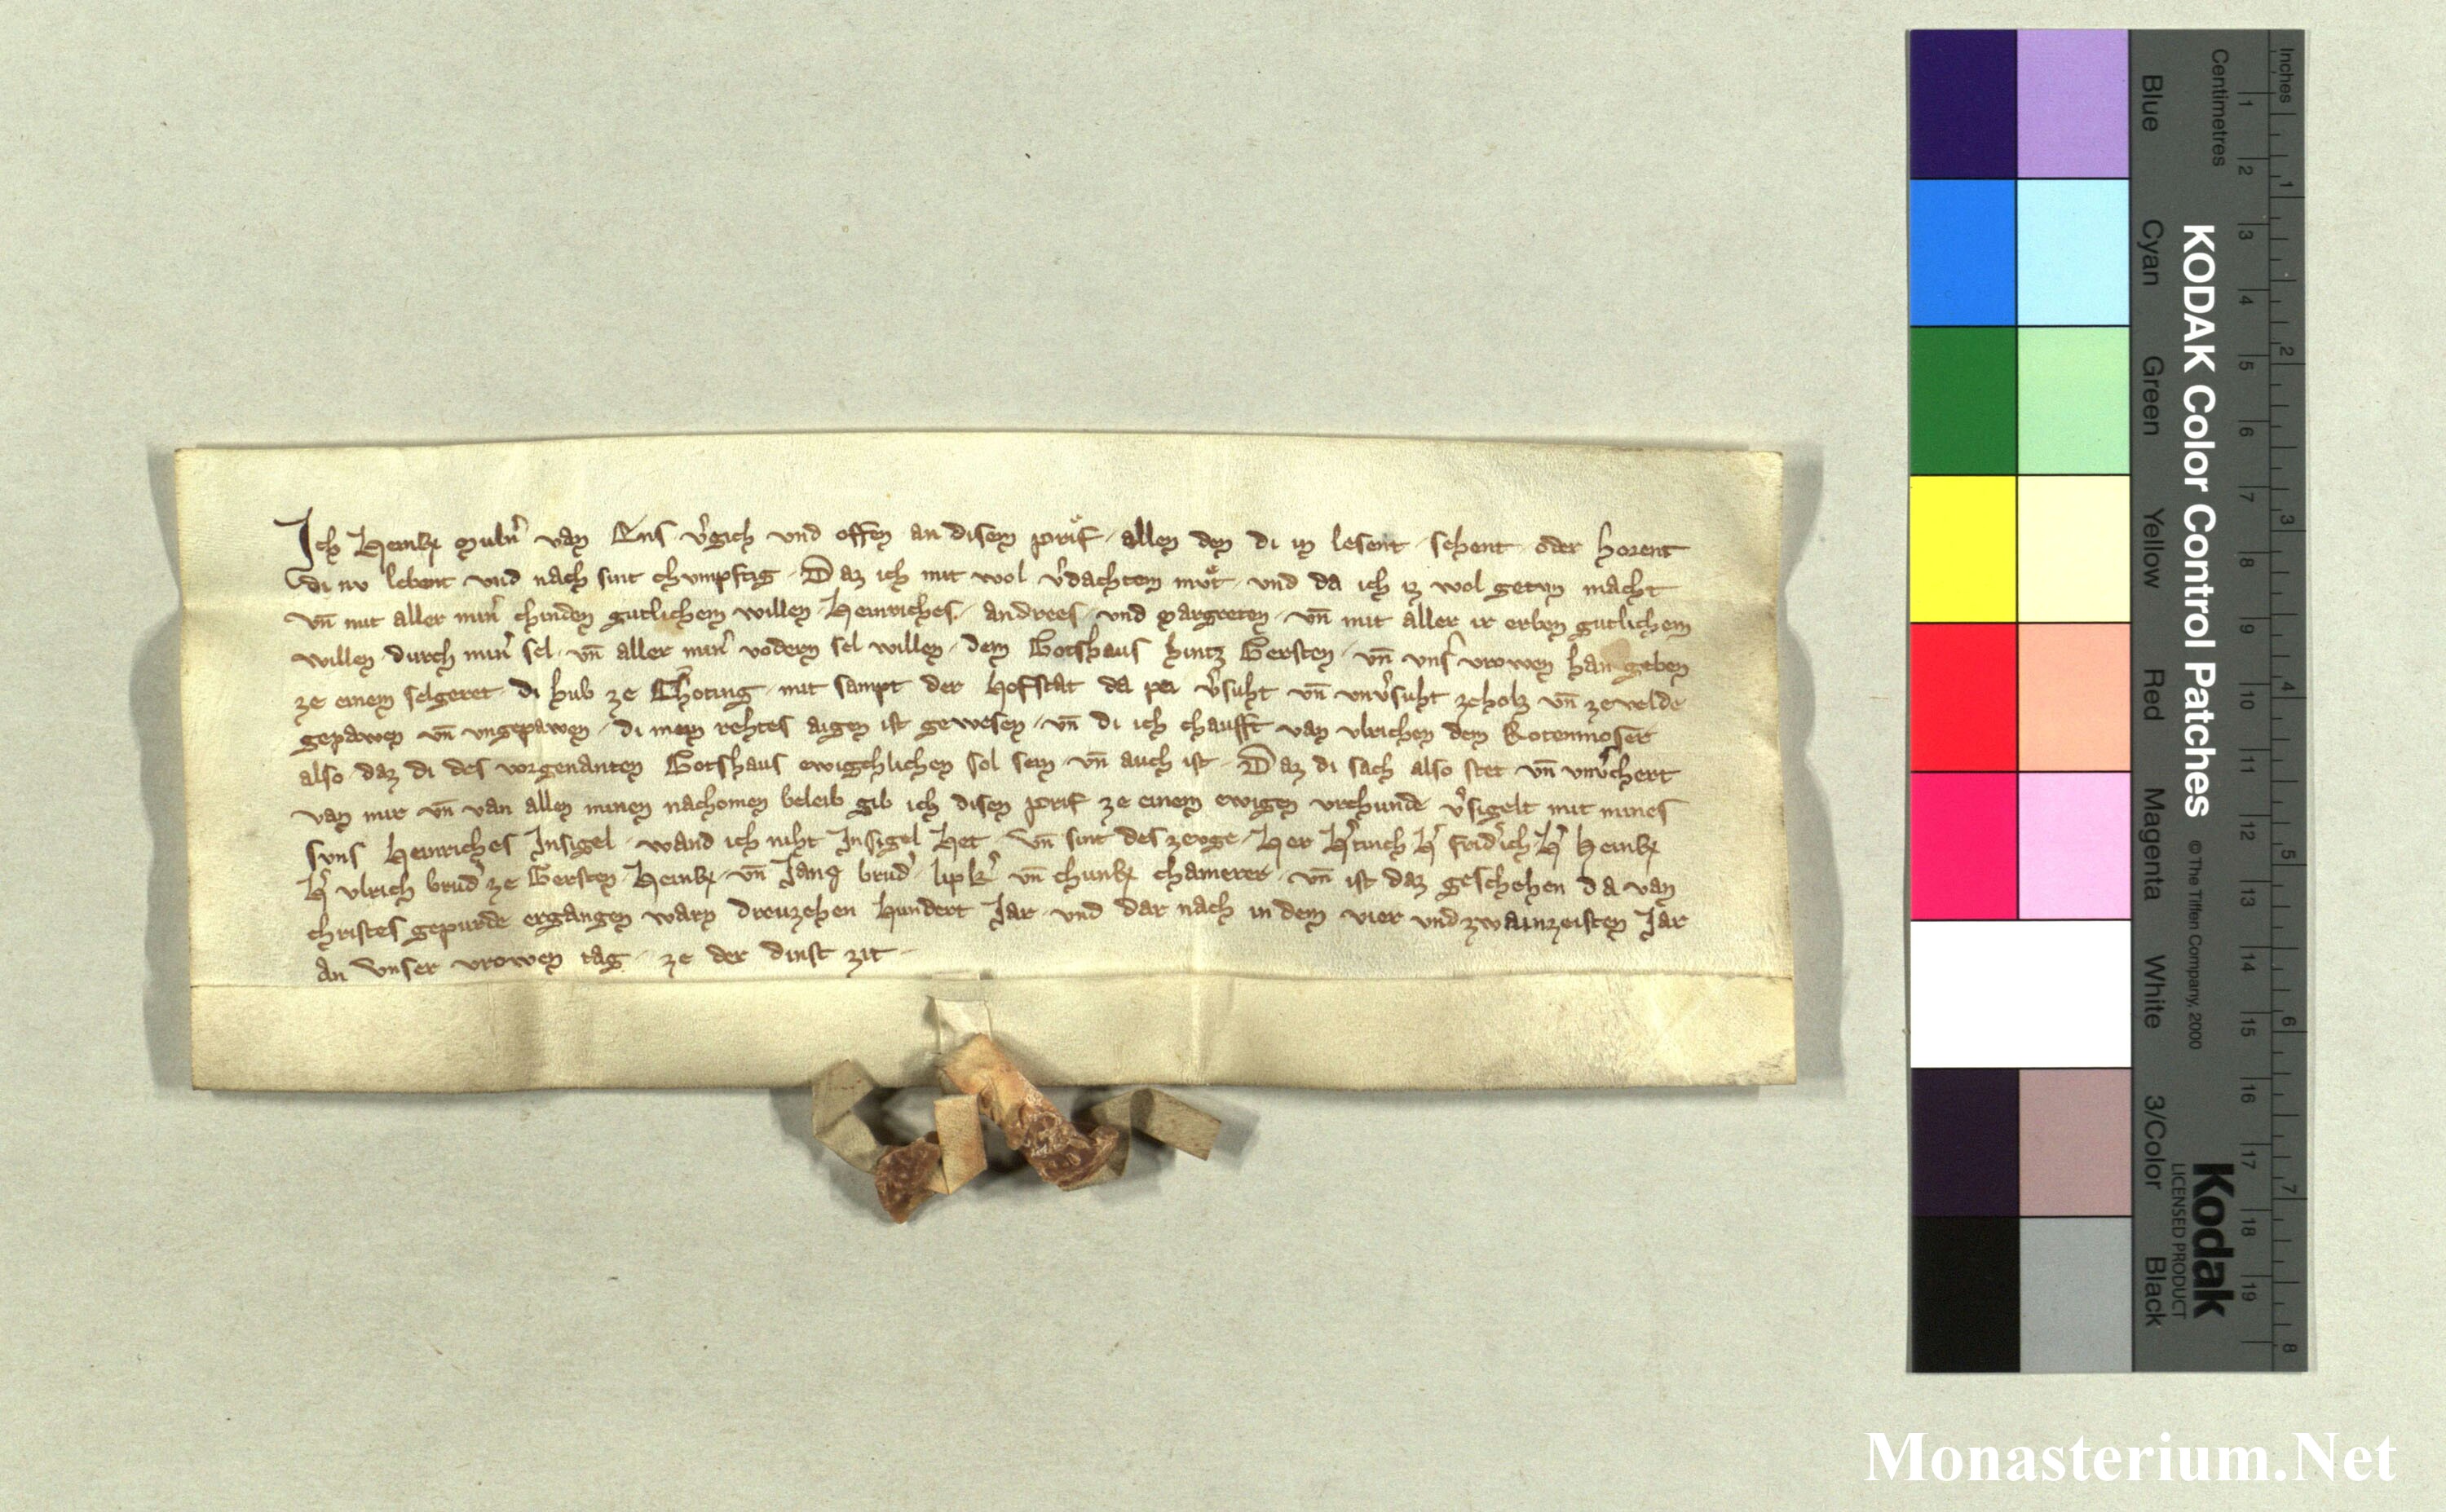 Ich Heinkʒ mulnˀ van Ens vˀgich und offen an disem prif allen den di in lesent sehent oder horent
di nv lebent und nach sint chumpftig Daz ich mit wol vˀdachtem muͤt und da ich iz wol getun macht
vn̄ mit aller minˀ chinden gutlichem willen Heinriches andrees und margreten vn̄ mit aller ir erben gutlichem
willen durch minˀ sel vn̄ aller minˀ vodern sel willen dem Gotshaus hintz Gersten vn̄ vnsˀ vrowen han geben
ze einem selgeret di hub ze mit sampt der hofstat da pei vˀsuht vn̄ vnvˀsuht zeholz vn̄ zevelde
gepawen vn̄ vngepawen di mein rehtes aigen ist gewesen vn̄ di ich chaufft van vlrichen dem Rotenmoser
also daz di des vorgenanten Gotshaus ewigchlichen sol sein vn̄ auch ist Daz di sach also stet vn̄ vnvˀchert
van mir vn̄ van allen minen nachomen beleib gib ich disen prif ze einem ewigen vrchunde vˀsigelt mit mines
suns Heinriches Insigel wand ich niht Insigel Het Vn̄ sint des zevge Her Hˀ fridˀich Hˀ Heinkʒ
Hˀ vlrich brudˀ ze Gersten Heinkʒ vn̄ Jans brudˀ vn̄ chunkʒ chamerer vn̄ ist daz geschehen da van
christes gepurde ergangen warn dreuzehen hundert Jar und dar nach in dem vier und zwainzeisten Jar
an Vnser vrowen tag ze der dinst zit
Blue
Cyan
Green
Yellow
Red
Magenta
White
3/Color
Black
KODAK Color Control Patches
© The Tiffen Company, 2000
Kodak
LICENSED PRODUCT
Centimetres
1 2 3 4 5 6 7 8 9 10 11 12 13 14 15 16 17 18 19
Inches
1 2 3 4 5 6 7 8
Monasterium.Net